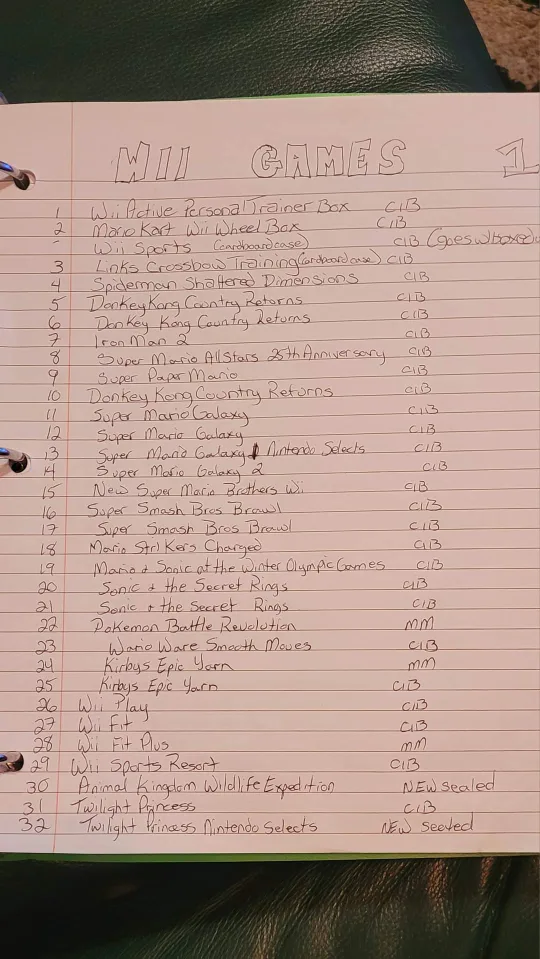 WII GAMES 1
1 Wii Active Personal Trainer Box CIB
2 Mario Kart Wii Wheel Box CIB
- Wii Sports (cardboard case) CIB (goes w/boxed
3 Links Crossbow Training (cardboard case) CIB
4 Spiderman Shattered Dimensions CIB
5 Donkey Kong Country Returns CIB
6 Donkey Kong Country Returns CIB
7 Iron Man 2 CIB
8 Super Mario All Stars 25th Anniversary CIB
9 Super Paper Mario CIB
10 Donkey Kong Country Returns CIB
11 Super Mario Galaxy CIB
12 Super Mario Galaxy CIB
13 Super Mario Galaxy Nintendo Selects CIB
14 Super Mario Galaxy 2 CIB
15 New Super Mario Brothers Wii CIB
16 Super Smash Bros Brawl CIB
17 Super Smash Bros Brawl CIB
18 Mario Strikers Charged CIB
19 Mario & Sonic at the Winter Olympic Games CIB
20 Sonic & the Secret Rings CIB
21 Sonic & the Secret Rings CIB
22 Pokemon Battle Revolution MM
23 Wario Ware Smooth Moves CIB
24 Kirbys Epic Yarn MM
25 Kirbys Epic Yarn CIB
26 Wii Play CIB
27 Wii Fit CIB
28 Wii Fit Plus MM
29 Wii Sports Resort CIB
30 Animal Kingdom Wildlife Expedition NEW sealed
31 Twilight Princess CIB
32 Twilight Princess Nintendo Selects NEW sealed